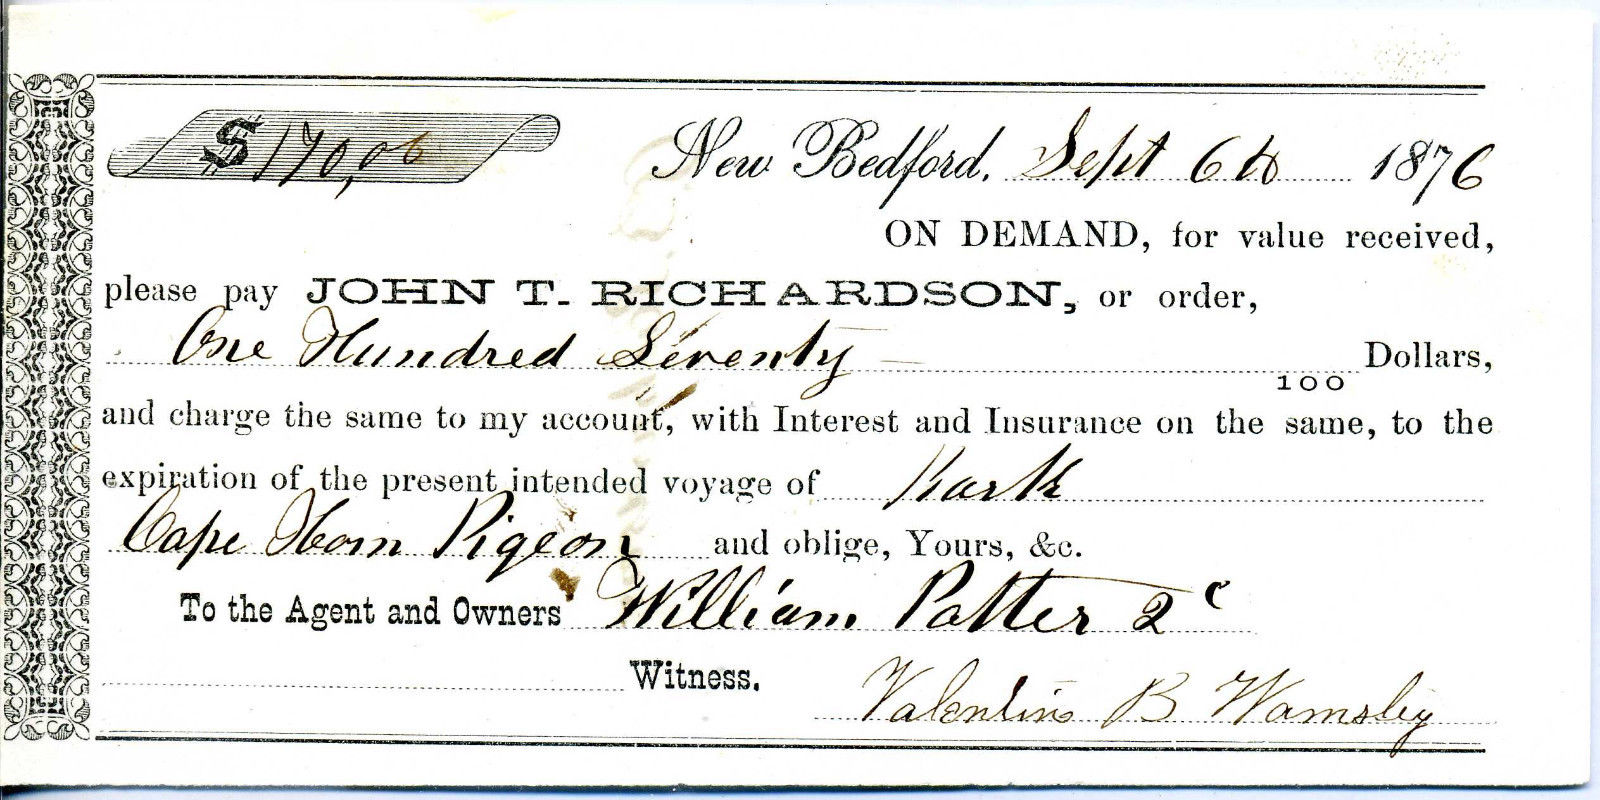 $170,00
New Bedford, Sept 6th 1876
ON DEMAND, for value received,
please pay JOHN T. RICHARDSON, or order,
One Hundred Seventy — Dollars,
100
and charge the same to my account, with Interest and Insurance on the same, to the
expiration of the present intended voyage of Bark
Cape Horn Pigeon and oblige, Yours, &c.
To the Agent and Owners William Potter 2
Witness. Valentine B Wamsley